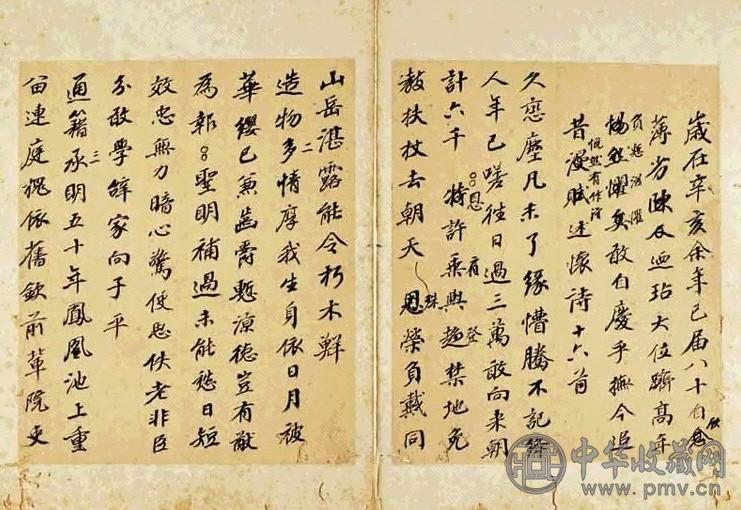 歲在辛亥余年已届八十自念
薄劣陳及迴玷大位躋高年
負慙滋懼
惕然懼矣敢自慶乎撫今追
慨然有作
昔漫賦述懷詩十六首
久戀塵凡未了緣懵騰不記
人年已嗟往日過三萬敢向来朝
計六千 特許乘輿趨禁地免
恩 肩 登
教扶杖去朝天 恩榮負戴同
殊
山岳湛露能令朽木鮮
二
造物多情厚我生身依日月被
華纓已兼齒爵慙涼德豈有猷
為報 聖明補過未能愁日短
效忠無力暗心驚使思佚老非臣
分敢學辭家向子平
三
通籍承明五十年鳳凰池上重
留連庭槐依舊欽前輩院吏
中华收藏网
www.pmv.cn